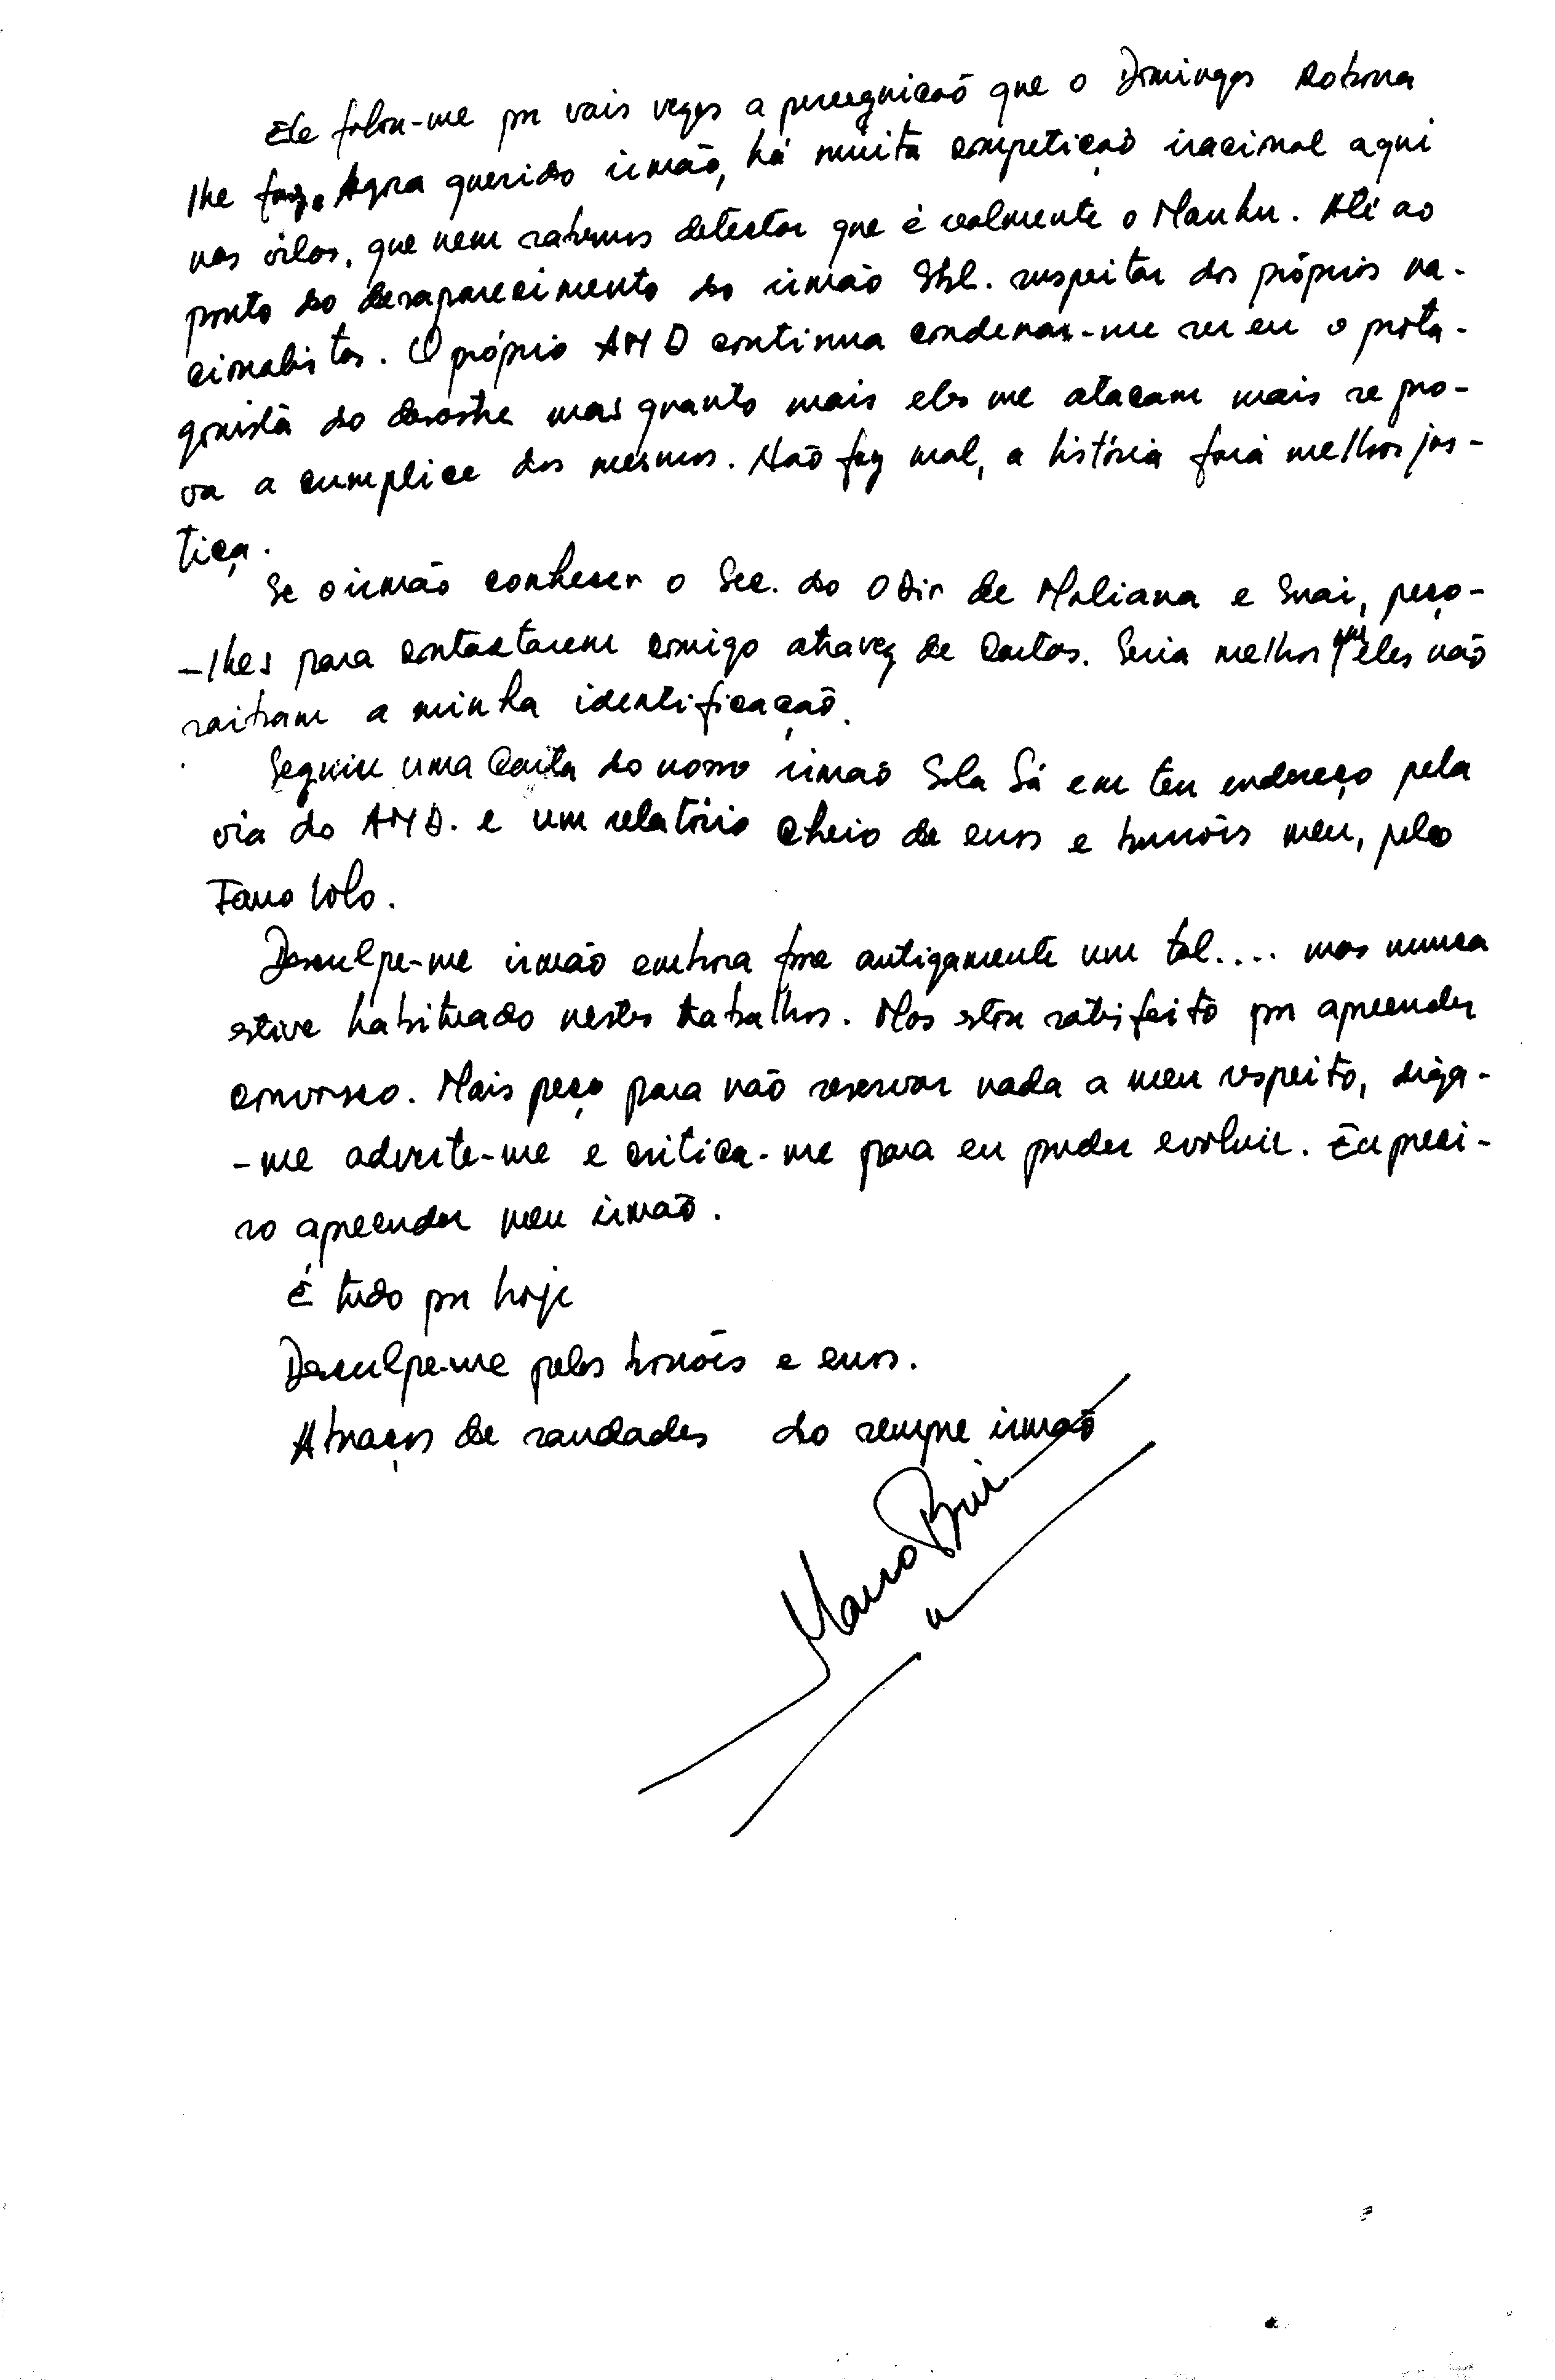 Ele falou-me por vais vezes a perseguição que o Domingos
lhe faz. Agora querido irmão, há muita competição iracional aqui
nas vilas, que nem sabemos detectar que é realmente o Mauhu. Até ao
ponto do desaparecimento do irmão Sbl. suspeitar dos próprios na-
cionalistas. O próprio AMD continua condenar-me ser eu o prota-
gonista do desastre mas quanto mais eles me atacam mais se pro-
va a cumplice dos mesmos. Não faz mal, a história fará melhor jus-
tiça.
Se o irmão conhecer o Sec. do ODir de Maliana e Suai, peço-
-lhes para contactarem comigo atravez de Cartas. Seria melhor que eles não
saibam a minha identificação.
Seguiu uma Carta do nosso irmão Sola Sá em teu endereço pela
via do AMD. e um relatório cheio de erros e burrões meu, pelo
Tauo lolo.
Desculpe-me irmão embora fora antigamente um tal.... mas nunca
estive habituado nestes trabalhos. Mas estou satisfeito por apreender
convosco. Mais peço para não reservar nada a meu respeito, diga-
-me adverte-me e critica-me para eu puder evoluir. Eu preci-
so apreender meu irmão.
É tudo por hoje
Desculpe-me pelos borrões e erros.
Abraços de saudades do sempre irmão